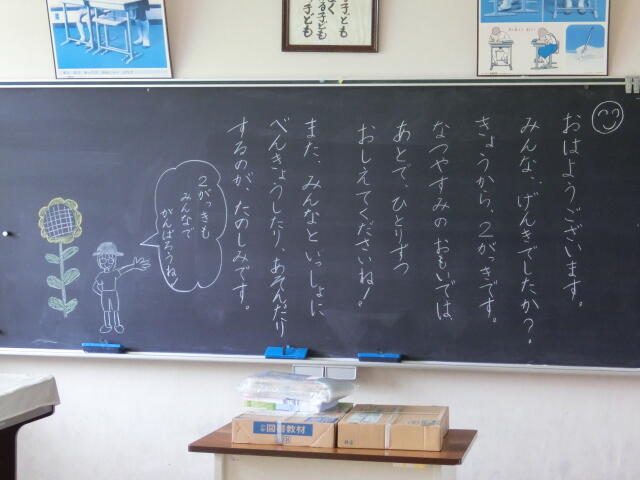 おはようございます。
みんな、げんきでしたか？
きょうから、2がっきです。
なつやすみのおもいでは、
あとで、ひとりずつ
おしえてくださいね！
また、みんなといっしょに
べんきょうしたり、あそんだり
するのが、たのしみです。
2がっきも
みんなで
がんばろうね！
図書教材